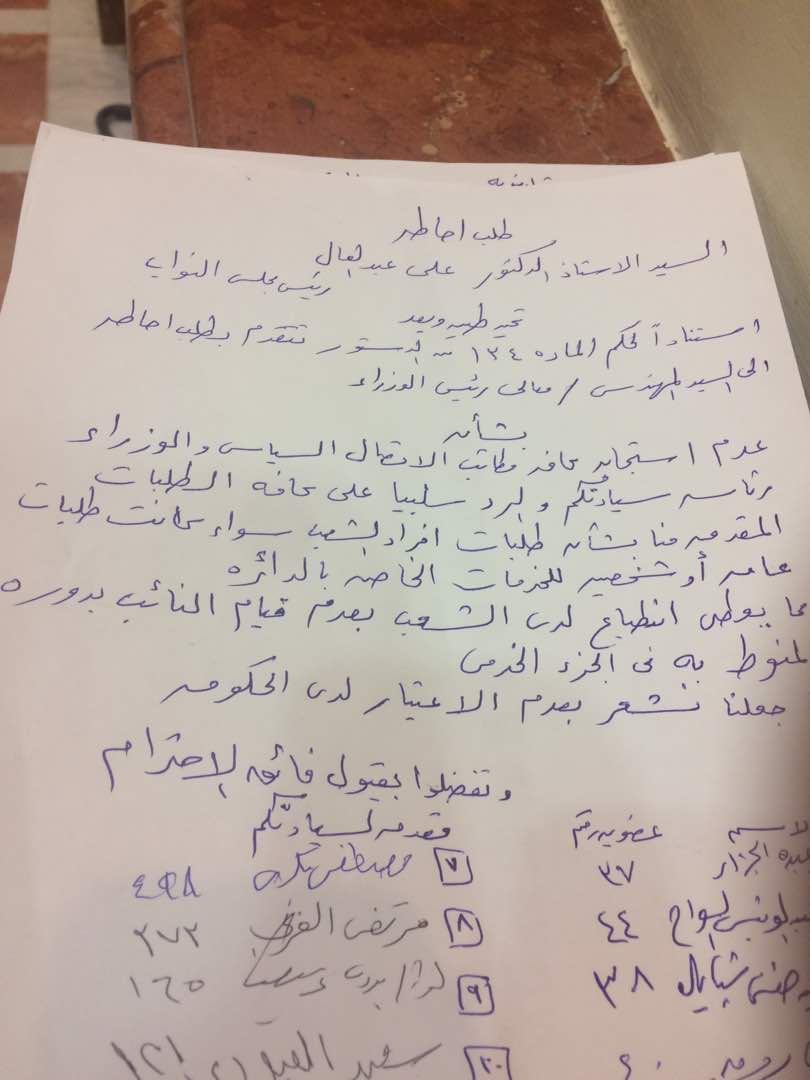 طلب احاطه
السيد الاستاذ الدكتور على عبد العال
رئيس مجلس النواب
تحيه طيبه وبعد
استناداً لحكم الماده ١٣٤ من الدستور نتقدم بطلب احاطه
الى السيد المهندس / معالى رئيس الوزراء
بشأن
عدم استجابه كافه مكاتب الاتصال السياسى والوزراء
برئاسه سيادتكم والرد سلبيا على كافه الطلبات
المقدمه منا بشأن طلبات افراد الشعب سواء كانت طلبات
عامه أو شخصيه للخدمات الخاصه بالدائره
مما يعطى انطباع لدى الشعب بعدم قيام النائب بدوره
المنوط به فى الجزء الخدمى
جعلنا نشعر بعدم الاعتبار لدى الحكومه
وتفضلوا بقبول فائق الاحترام
مقدمه لسيادتكم
الاسم عضويه رقم
الجزار ٣٧
٧ مصطفى ٤٥٨
السواح ٤٤
٨ مرتضى ٣٧٣
٣٨
٩ ١٦٥
١٠ سعيد